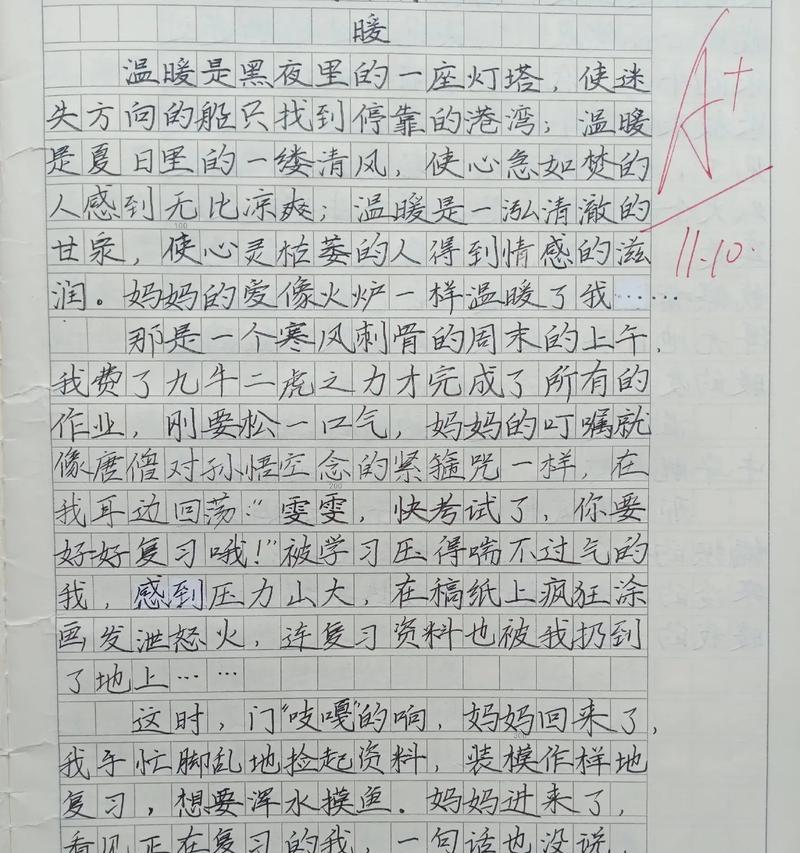 暖
A+
温暖是黑夜里的一座灯塔，使迷
失方向的船只找到停靠的港湾；温暖
是夏日里的一缕清风，使心急如焚的
人感到无比凉爽；温暖是一泓清澈的
100
甘泉，使心灵枯萎的人得到情感的滋
11.10.
润。妈妈的爱像火炉一样温暖了我……
那是一个寒风刺骨的周末的上午，
我费了九牛二虎之力才完成了所有的
作业，刚要松一口气，妈妈的叮嘱就
像唐僧对孙悟空念的紧箍咒一样，在
200
我耳边回荡：“雯雯，快考试了，你要
好好复习哦！”被学习压得喘不过气的
我，感到压力山大，在稿纸上疯狂涂
画发泄怒火，连复习资料也被我扔到
了地上……
这时，门“吱嘎”的响，妈妈回来了，
300
我手忙脚乱地捡起资料，装模作样地
复习，想要浑水摸鱼．妈妈进来了，
看见正在复习的我，一句话也没说，